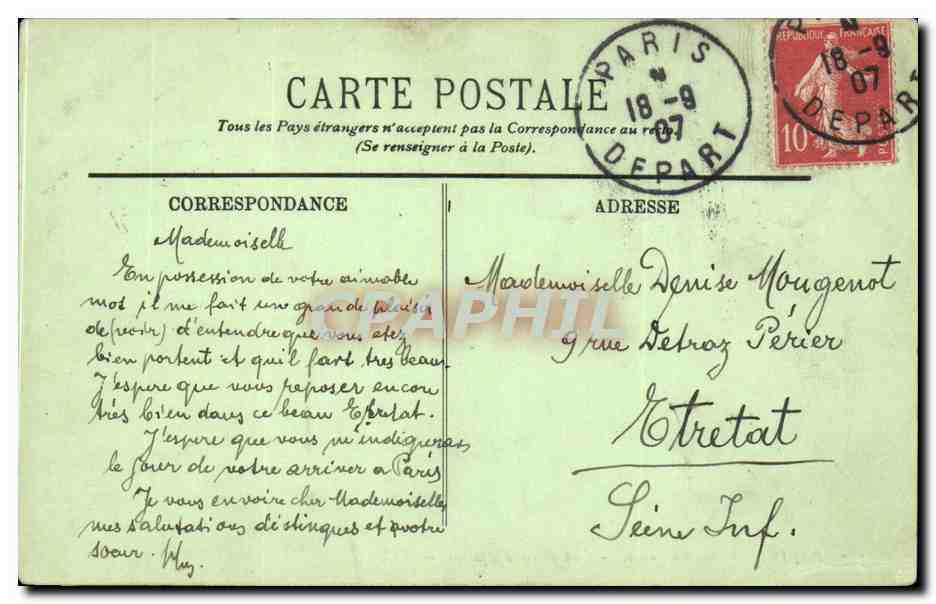 CARTE POSTALE
Tous les Pays étrangers n'acceptent pas la Correspondance au recto.
(Se renseigner à la Poste).
PARIS
18 - 9
07
DEPART
REPUBLIQUE FRANÇAISE
18 - 9
07
DEPART
10
CORRESPONDANCE
Mademoiselle
En possession de votre aimable
mot il me fait un grande plaisir
de (voir) d'entendre que vous etez
bien portent et qu'il fait tres beau.
J'espere que vous reposer encore
très bien dans ce beau Etretat.
J'espere que vous m'indiqueras
le jour de votre arriver a Paris
Je vous envoire cher Mademoiselle
mes salutations distingues et a votre
soeur.
ADRESSE
Mademoiselle Denise Mougenot
9 rue Detroz Périer
Etretat
Seine Inf.
CPAPHIL